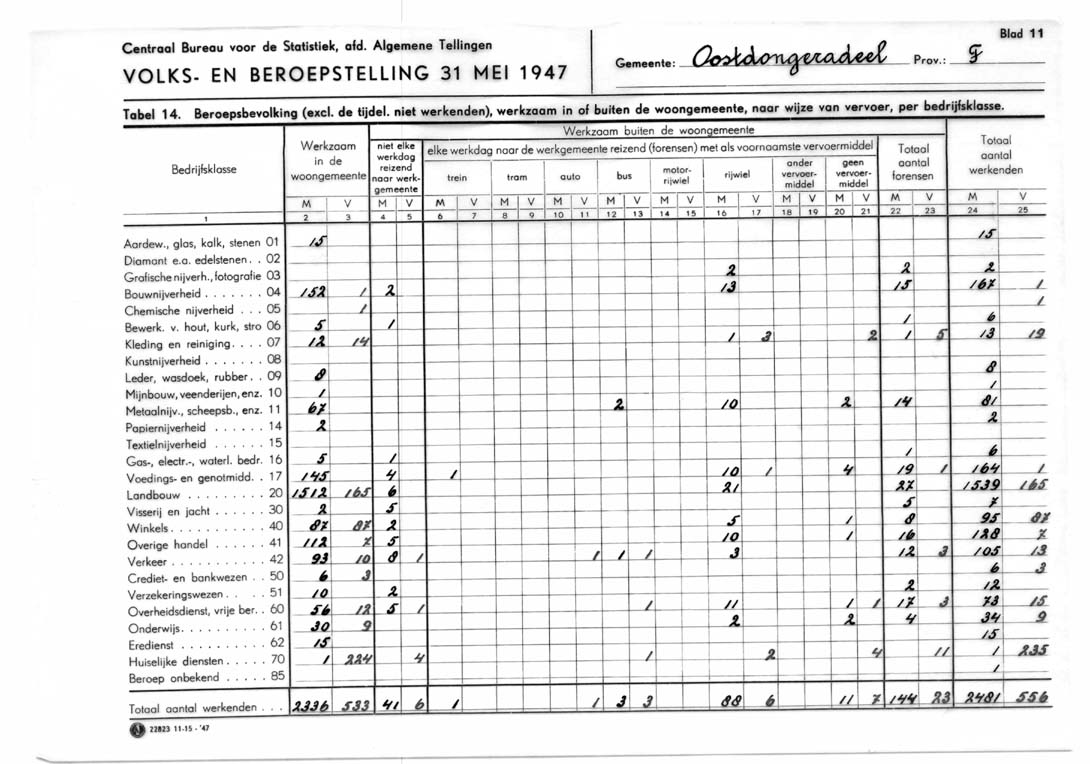 Blad 11
Centraal Bureau voor de Statistiek, afd. Algemene Tellingen
VOLKS- EN BEROEPSTELLING 31 MEI 1947
Gemeente: Oostdongeradeel Prov.: F
Tabel 14. Beroepsbevolking (excl. de tijdel. niet werkenden), werkzaam in of buiten de woongemeente, naar wijze van vervoer, per bedrijfsklasse.
Bedrijfsklasse
Werkzaam in de woongemeente
Werkzaam buiten de woongemeente
niet elke werkdag reizend naar werk-gemeente
elke werkdag naar de werkgemeente reizend (forensen) met als voornaamste vervoermiddel
trein tram auto bus motor-rijwiel rijwiel ander vervoer-middel geen vervoer-middel
Totaal aantal forensen
Totaal aantal werkenden
M V M V M V M V M V M V M V M V M V M V M V M V
1 2 3 4 5 6 7 8 9 10 11 12 13 14 15 16 17 18 19 20 21 22 23 24 25
Aardew., glas, kalk, stenen 01 15 15
Diamant e.a. edelstenen . . 02
Grafische nijverh., fotografie 03 2 2 2
Bouwnijverheid . . . . . . . 04 152 1 2 13 15 167 1
Chemische nijverheid . . . 05 1 1
Bewerk. v. hout, kurk, stro 06 5 1 1 6
Kleding en reiniging. . . . 07 12 14 1 3 2 1 5 13 19
Kunstnijverheid . . . . . . . 08
Leder, wasdoek, rubber. . 09 8 8
Mijnbouw, veenderijen, enz. 10 1 1
Metaalnijv., scheepsb., enz. 11 67 2 10 2 14 81
Papiernijverheid . . . . . . 14 2 2
Textielnijverheid . . . . . . 15
Gas-, electr.-, waterl. bedr. 16 5 1 1 6
Voedings- en genotmidd. . 17 145 4 1 10 1 4 19 1 164 1
Landbouw . . . . . . . . . 20 1512 165 6 21 27 1539 165
Visserij en jacht . . . . . . 30 2 5 5 7
Winkels . . . . . . . . . . . 40 87 87 2 5 1 8 95 87
Overige handel . . . . . . 41 112 7 5 10 1 16 128 7
Verkeer . . . . . . . . . . . 42 93 10 8 1 1 1 1 3 12 3 105 13
Crediet- en bankwezen . . 50 6 3 6 3
Verzekeringswezen. . . . . 51 10 2 2 12
Overheidsdienst, vrije ber. . 60 56 12 5 1 1 11 1 1 17 3 73 15
Onderwijs. . . . . . . . . . 61 30 9 2 2 4 34 9
Eredienst . . . . . . . . . . 62 15 15
Huiselijke diensten . . . . . 70 1 224 4 1 2 4 11 1 235
Beroep onbekend . . . . . 85 1
Totaal aantal werkenden . . . 2336 533 41 6 1 1 3 3 88 6 11 7 144 23 2481 556
22823 11-15 - '47